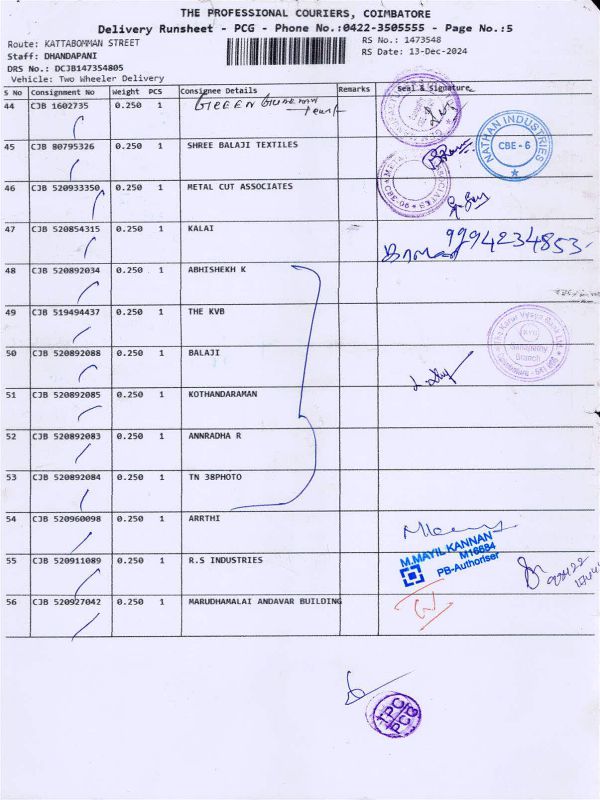 THE PROFESSIONAL COURIERS, COIMBATORE
Delivery Runsheet - PCG - Phone No.:0422-3505555 - Page No.:5
Route: KATTABOMMAN STREET
RS No.: 1473548
Staff: DHANDAPANI
RS Date: 13-Dec-2024
DRS No.: DCJB147354805
Vehicle: Two Wheeler Delivery
S No Consignment No Weight PCS Consignee Details Remarks Seal & Signature
44 CJB 1602735 0.250 1 GREEN
45 CJB 80795326 0.250 1 SHREE BALAJI TEXTILES
NATHAN INDUSTRIES
CBE - 6
46 CJB 520933350 0.250 1 METAL CUT ASSOCIATES
47 CJB 520854315 0.250 1 KALAI
9994234853
48 CJB 520892034 0.250 1 ABHISHEKH K
49 CJB 519494437 0.250 1 THE KVB
The Karur Vysya Bank Ltd
KVB
Branch
50 CJB 520892088 0.250 1 BALAJI
51 CJB 520892085 0.250 1 KOTHANDARAMAN
52 CJB 520892083 0.250 1 ANNRADHA R
53 CJB 520892084 0.250 1 TN 38PHOTO
54 CJB 520960098 0.250 1 ARRTHI
55 CJB 520911089 0.250 1 R.S INDUSTRIES
M.MAYIL KANNAN
M16884
PB-Authoriser
56 CJB 520927042 0.250 1 MARUDHAMALAI ANDAVAR BUILDING
TPC
PCG